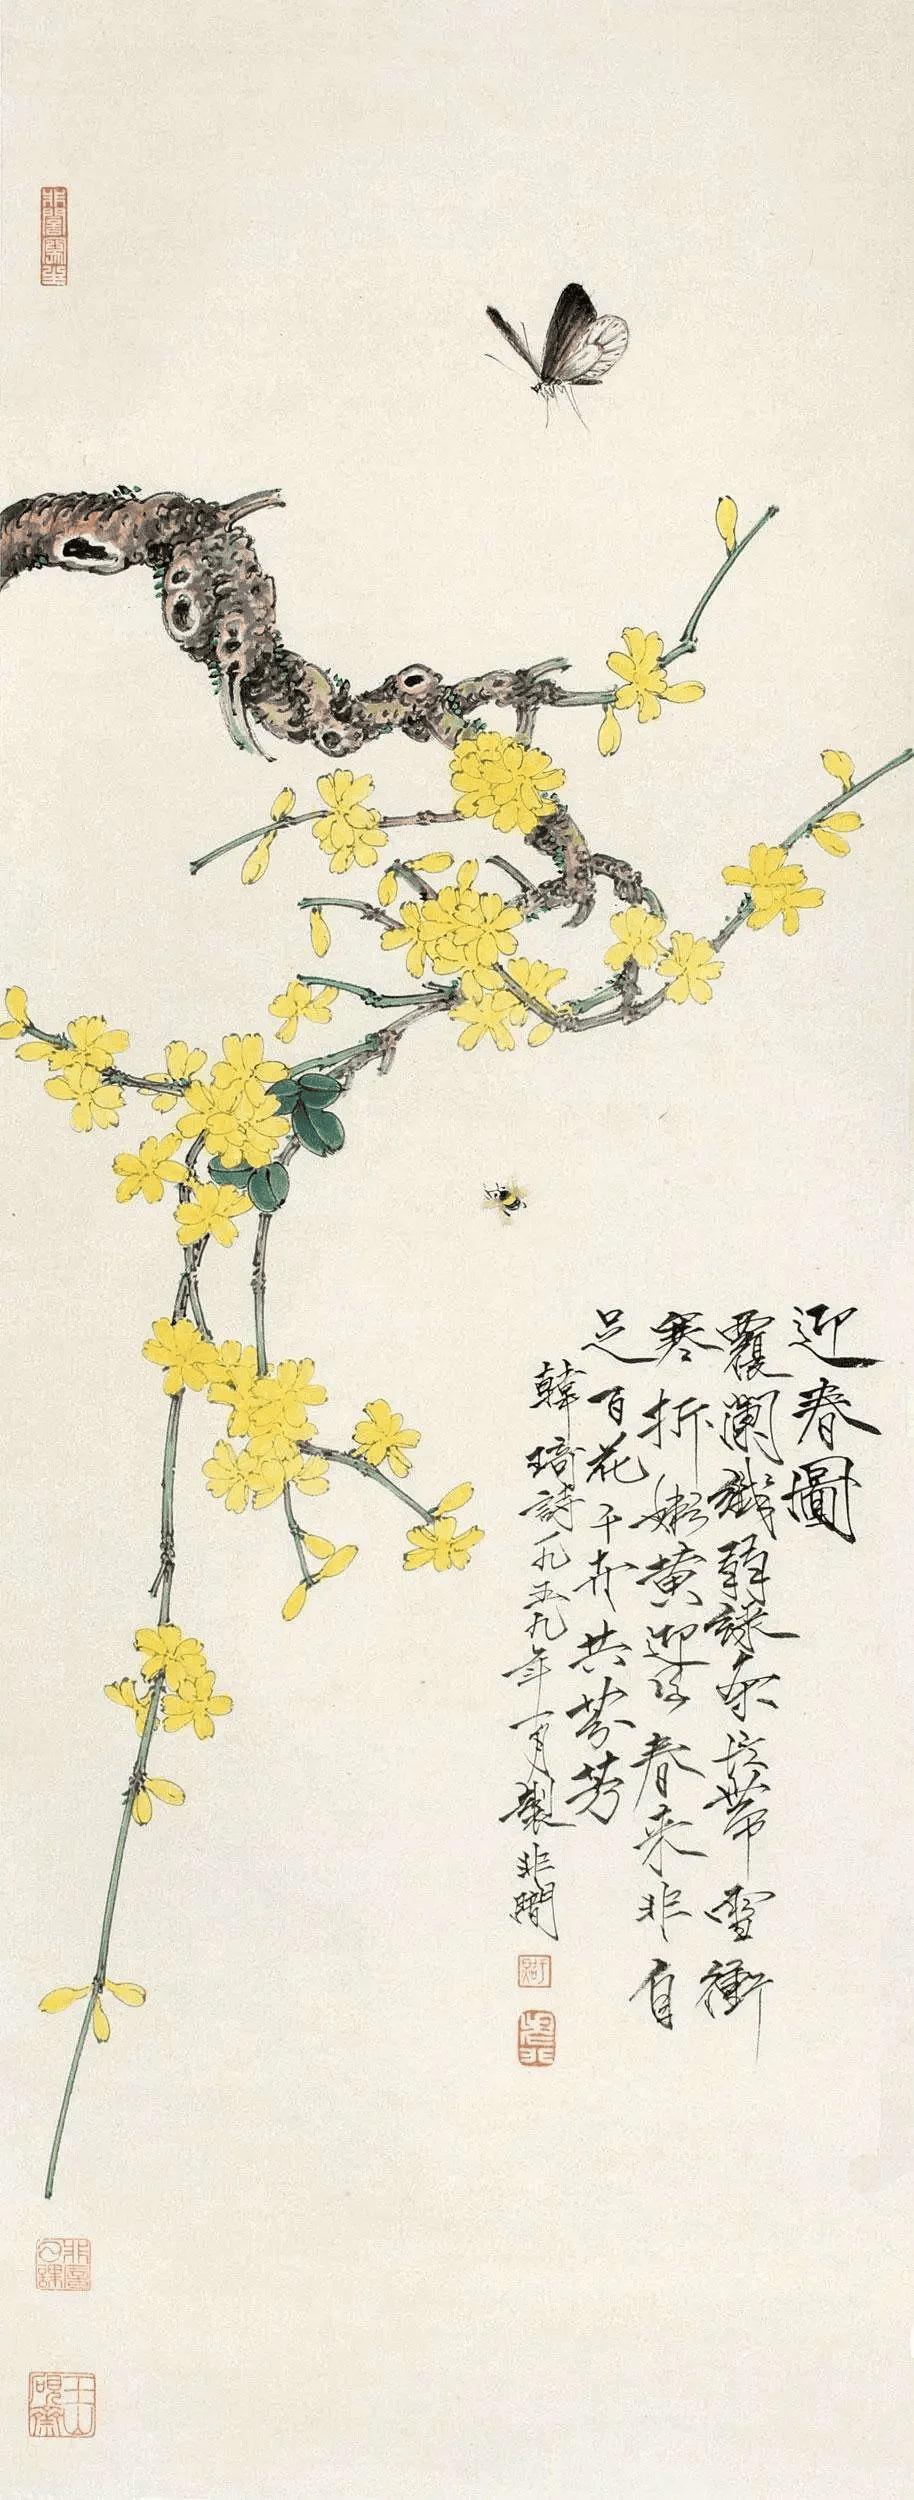 迎春圖
覆闌纖弱綠条長帶雪衝
寒折嫩黄迎得春来非自
足百花千卉共芬芳
韓琦詩一九五九年一月製非闇
玉山硯齋